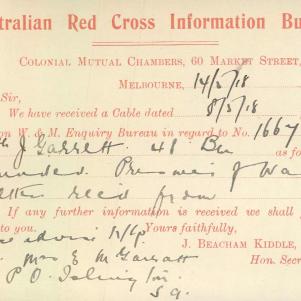 tralian Red Cross Information Bu
Colonial Mutual Chambers, 60 Market Street,
Melbourne, 14/5/18
Sir,
We have received a Cable dated 8/5/18
on W. & M. Enquiry Bureau in regard to No. 1667
J Garrett. 48 Bn as fo
unded. Prisoner of Wa
tter recd from
If any further information is received we shall
Yours faithfully,
J. Beacham Kiddle,
Mrs E M Garrett
Hon. Secr
P O. Islington
S A.